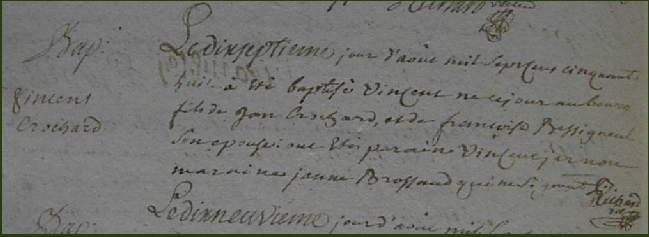 Bap:
Vincent
Crochard
Le dix septieme jour d'aout mil sept cent cinquante
huit a été baptisé Vincent né ce jour au bourg
fils de Jan Crochard, et de françoise Bessigneul
son epouse: ont etés parain Vincent
maraine jeanne Brossaud qui ne signent
Richard
Bap:
Le dix neuvieme jour d'aout mil